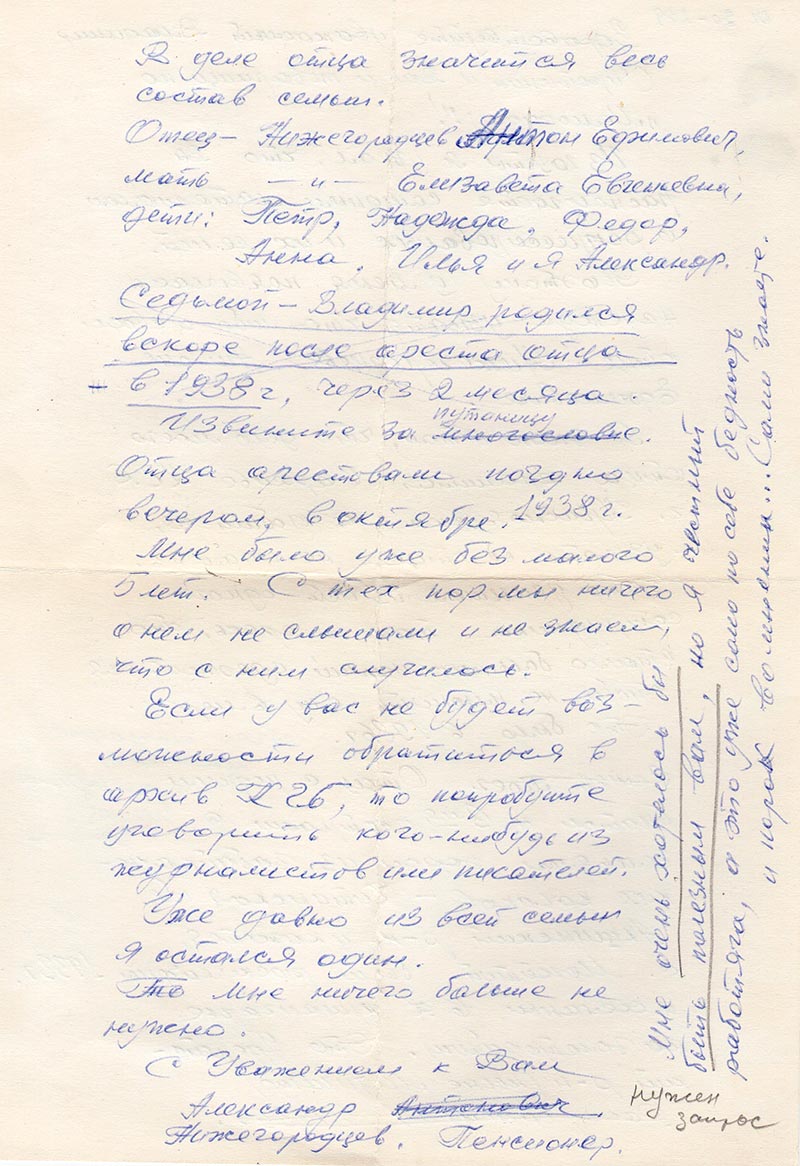 В деле отца значится весь
состав семьи.
Отец – Нижегородцев Антон Ефимович,
мать — и — Елизавета Евгеньевна,
дети: Петр, Надежда, Федор,
Анна, Илья и я Александр.
Седьмой – Владимир родился
вскоре после ареста отца
в 1938 г, через 2 месяца.
Извините за многословие.
путаницу
Отца арестовали поздно
вечером, в октябре, 1938 г.
Мне было уже без малого
5 лет. С тех пор мы ничего
о нем не слышали и не знаем,
что с ним случилось.
Если у вас не будет воз-
можности обратиться в
архив КГБ, то попробуйте
уговорить кого-нибудь из
журналистов или писателей.
Уже давно из всей семьи
я остался один.
То мне ничего больше не
нужно.
С Уважением к Вам
Александр Антонович
Нижегородцев. Пенсионер.
Мне очень хотелось бы
быть полезным вам, но я честный
работяга, а это уже само по себе бедность
и порок во мнении... Сами знаете.
нужен
запрос